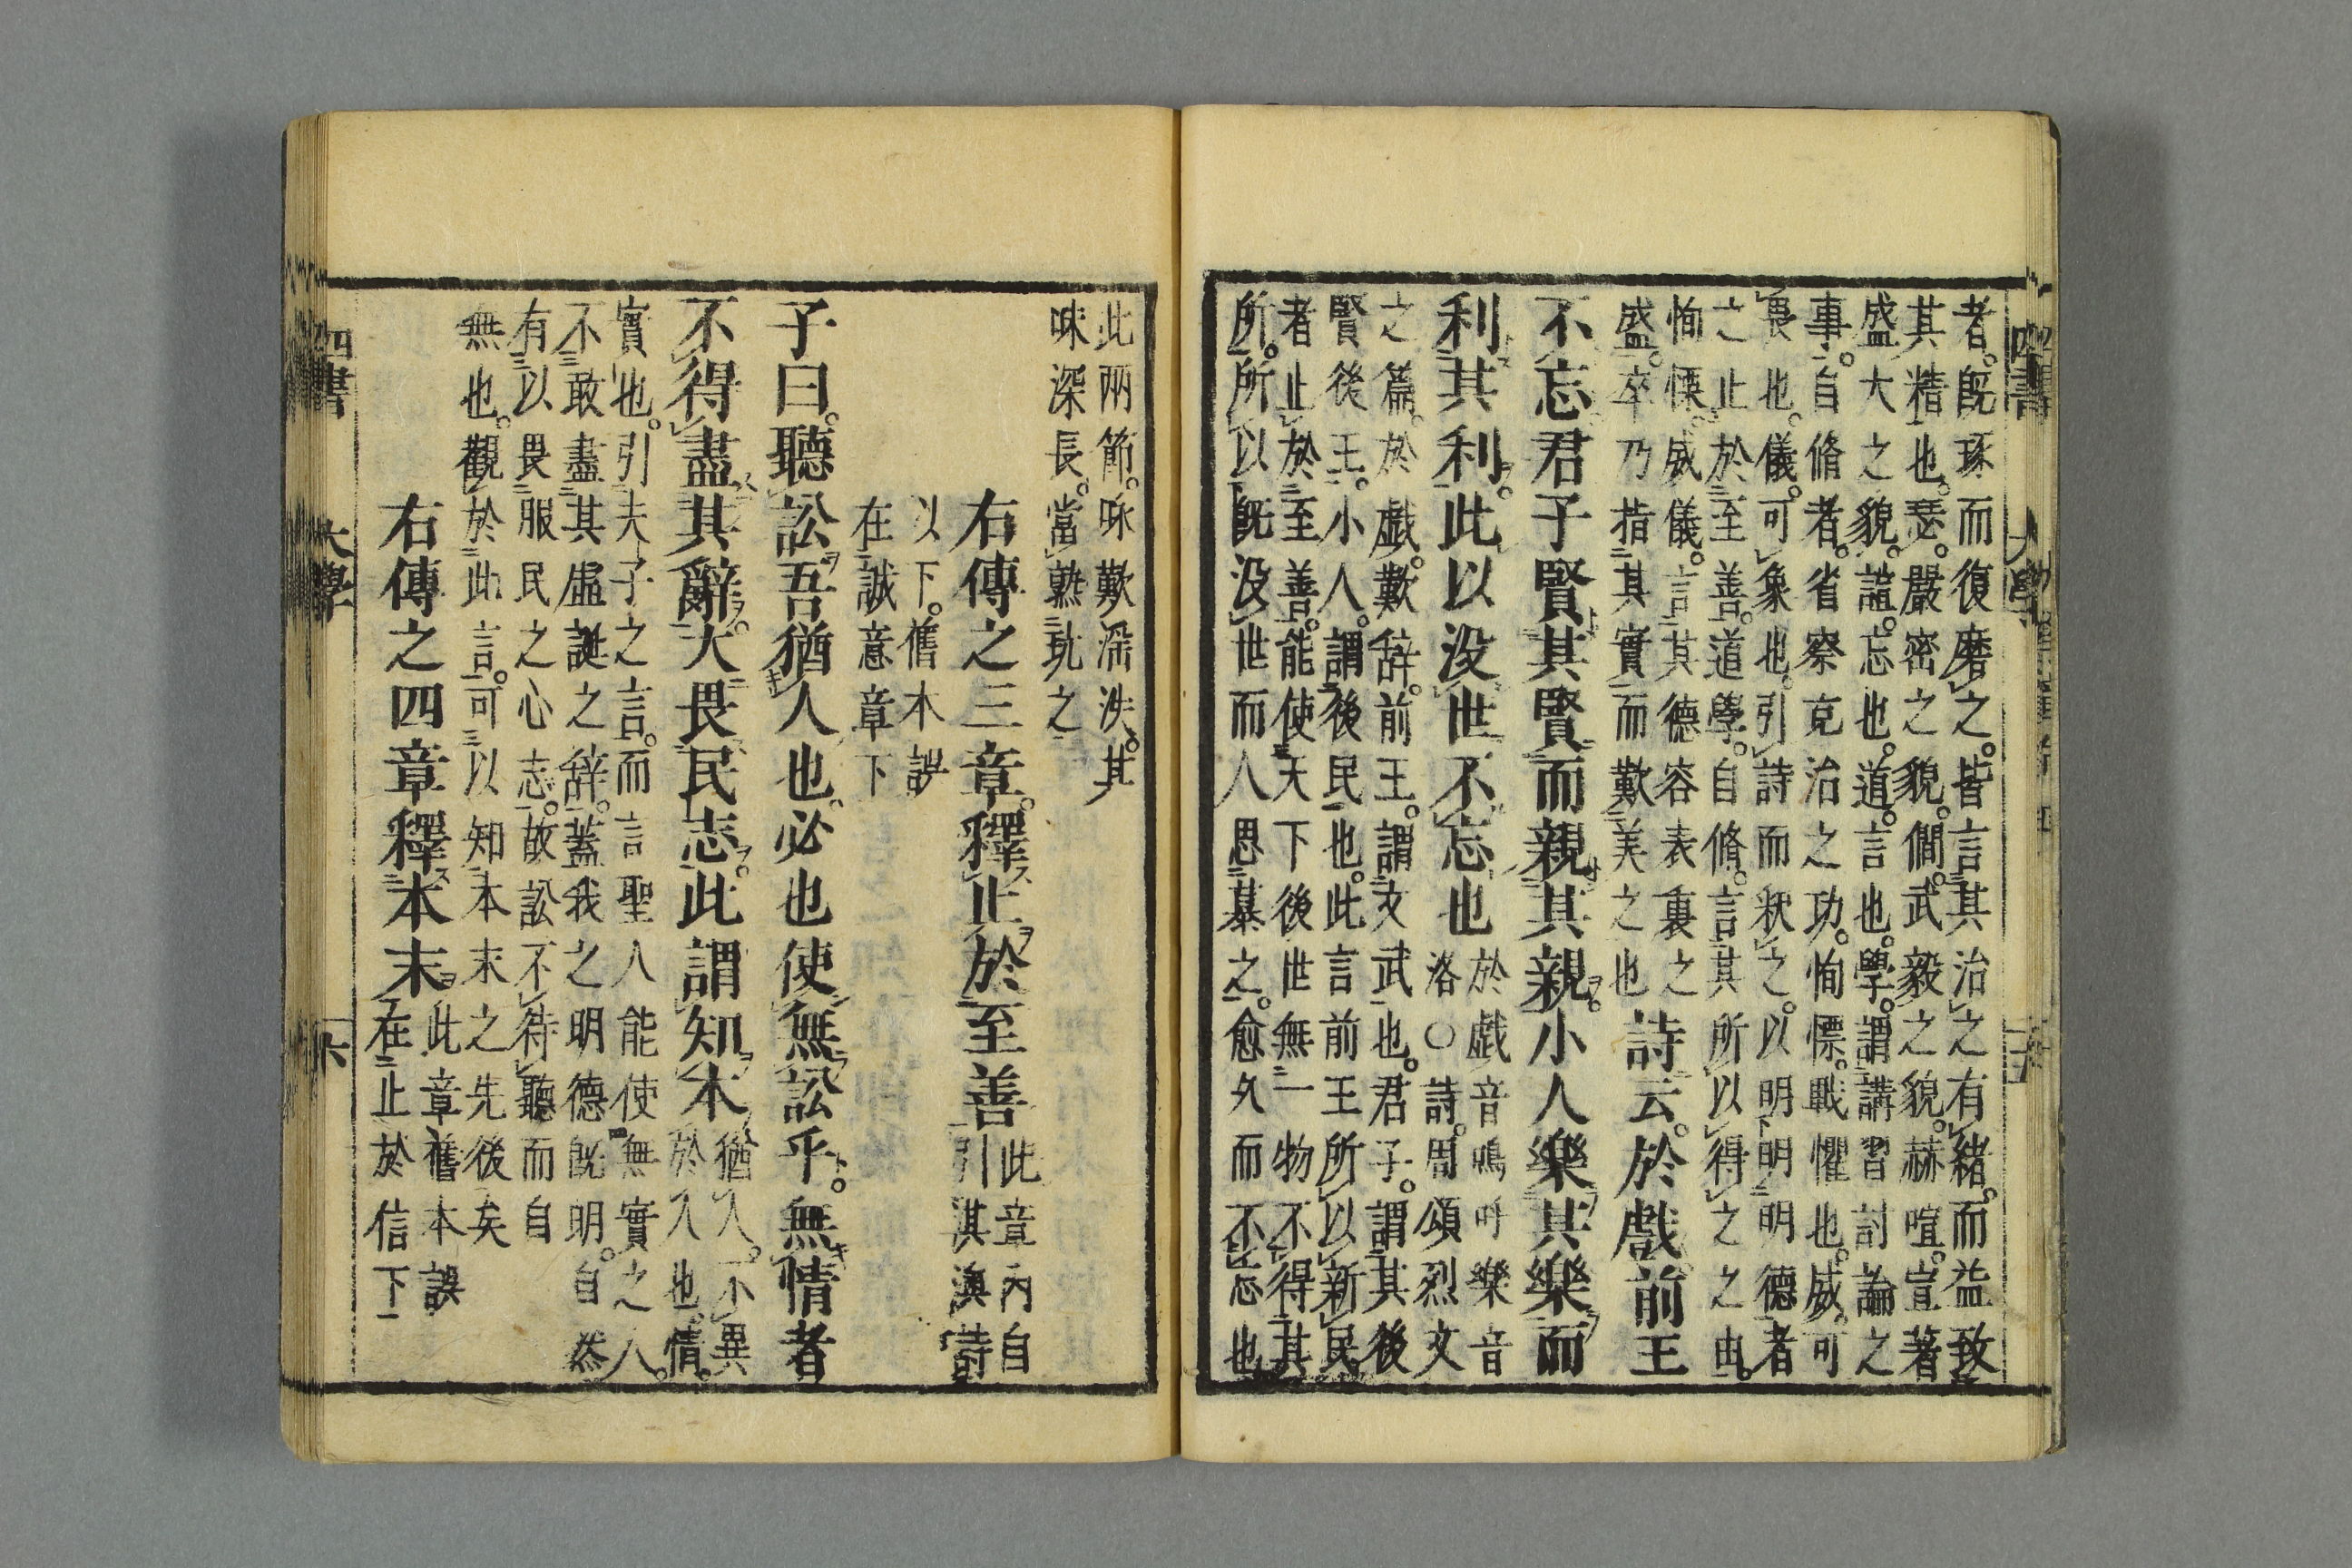 者。既琢而復磨之。皆言其治之有緒。而益致
其精也。瑟。嚴密之貌。僩。武毅之貌。赫喧。宣著
盛大之貌。諠。忘也。道。言也。學。謂講習討論之
事。自脩者。省察克治之功。恂慄。戰懼也。威。可
畏也。儀。可象也。引詩而釈之。以明明明德者
之止於至善。道學。自脩。言其所以得之之由。
恂慄。威儀。言其德容表裏之
盛。卒乃指其實而歎美之也
詩云。於戲前王
不忘君子賢其賢而親其親。小人樂其樂而
利其利。此以没世不忘也
於戯音嗚呼樂音
洛〇詩。周頌烈文
之篇。於戯。歎辞。前王。謂文武也。君子。謂其後
賢後王。小人。謂後民也。此言前王所以新民
者止於至善。能使天下後世無一物不得其
所。所以既没世而人思慕之。愈久而不忘也
此兩節。咏歎淫泆。其
味深長。當熟玩之
右傳之三章。釋止於至善
此章内自
引淇澳詩
以下。舊本誤
在誠意章下
子曰。聽訟吾猶人也。必也使無訟乎。無情者
不得盡其辭。大畏民志。此謂知本
猶人。不異
於人也。情。
實也。引夫子之言。而言聖人能使無實之人。
不敢盡其虚誕之辞。蓋我之明德既明。自然
有以畏服民之心志。故訟不待聽而自
無也。觀於此言。可以知本末之先後矣
右傳之四章釋本末
此章舊本誤
在止於信下
四書 大學 六